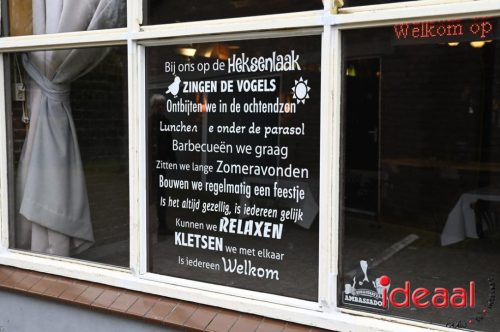 Welkom op
Bij ons op de Heksenlaak
ZINGEN DE VOGELS
Ontbijten we in de ochtendzon
Lunchen e onder de parasol
Barbecueën we graag
Zitten we lange Zomeravonden
Bouwen we regelmatig een feestje
Is het altijd gezellig, is iedereen gelijk
Kunnen we RELAXEN
KLETSEN we met elkaar
Is iedereen Welkom
AMBASSADO
ideaal